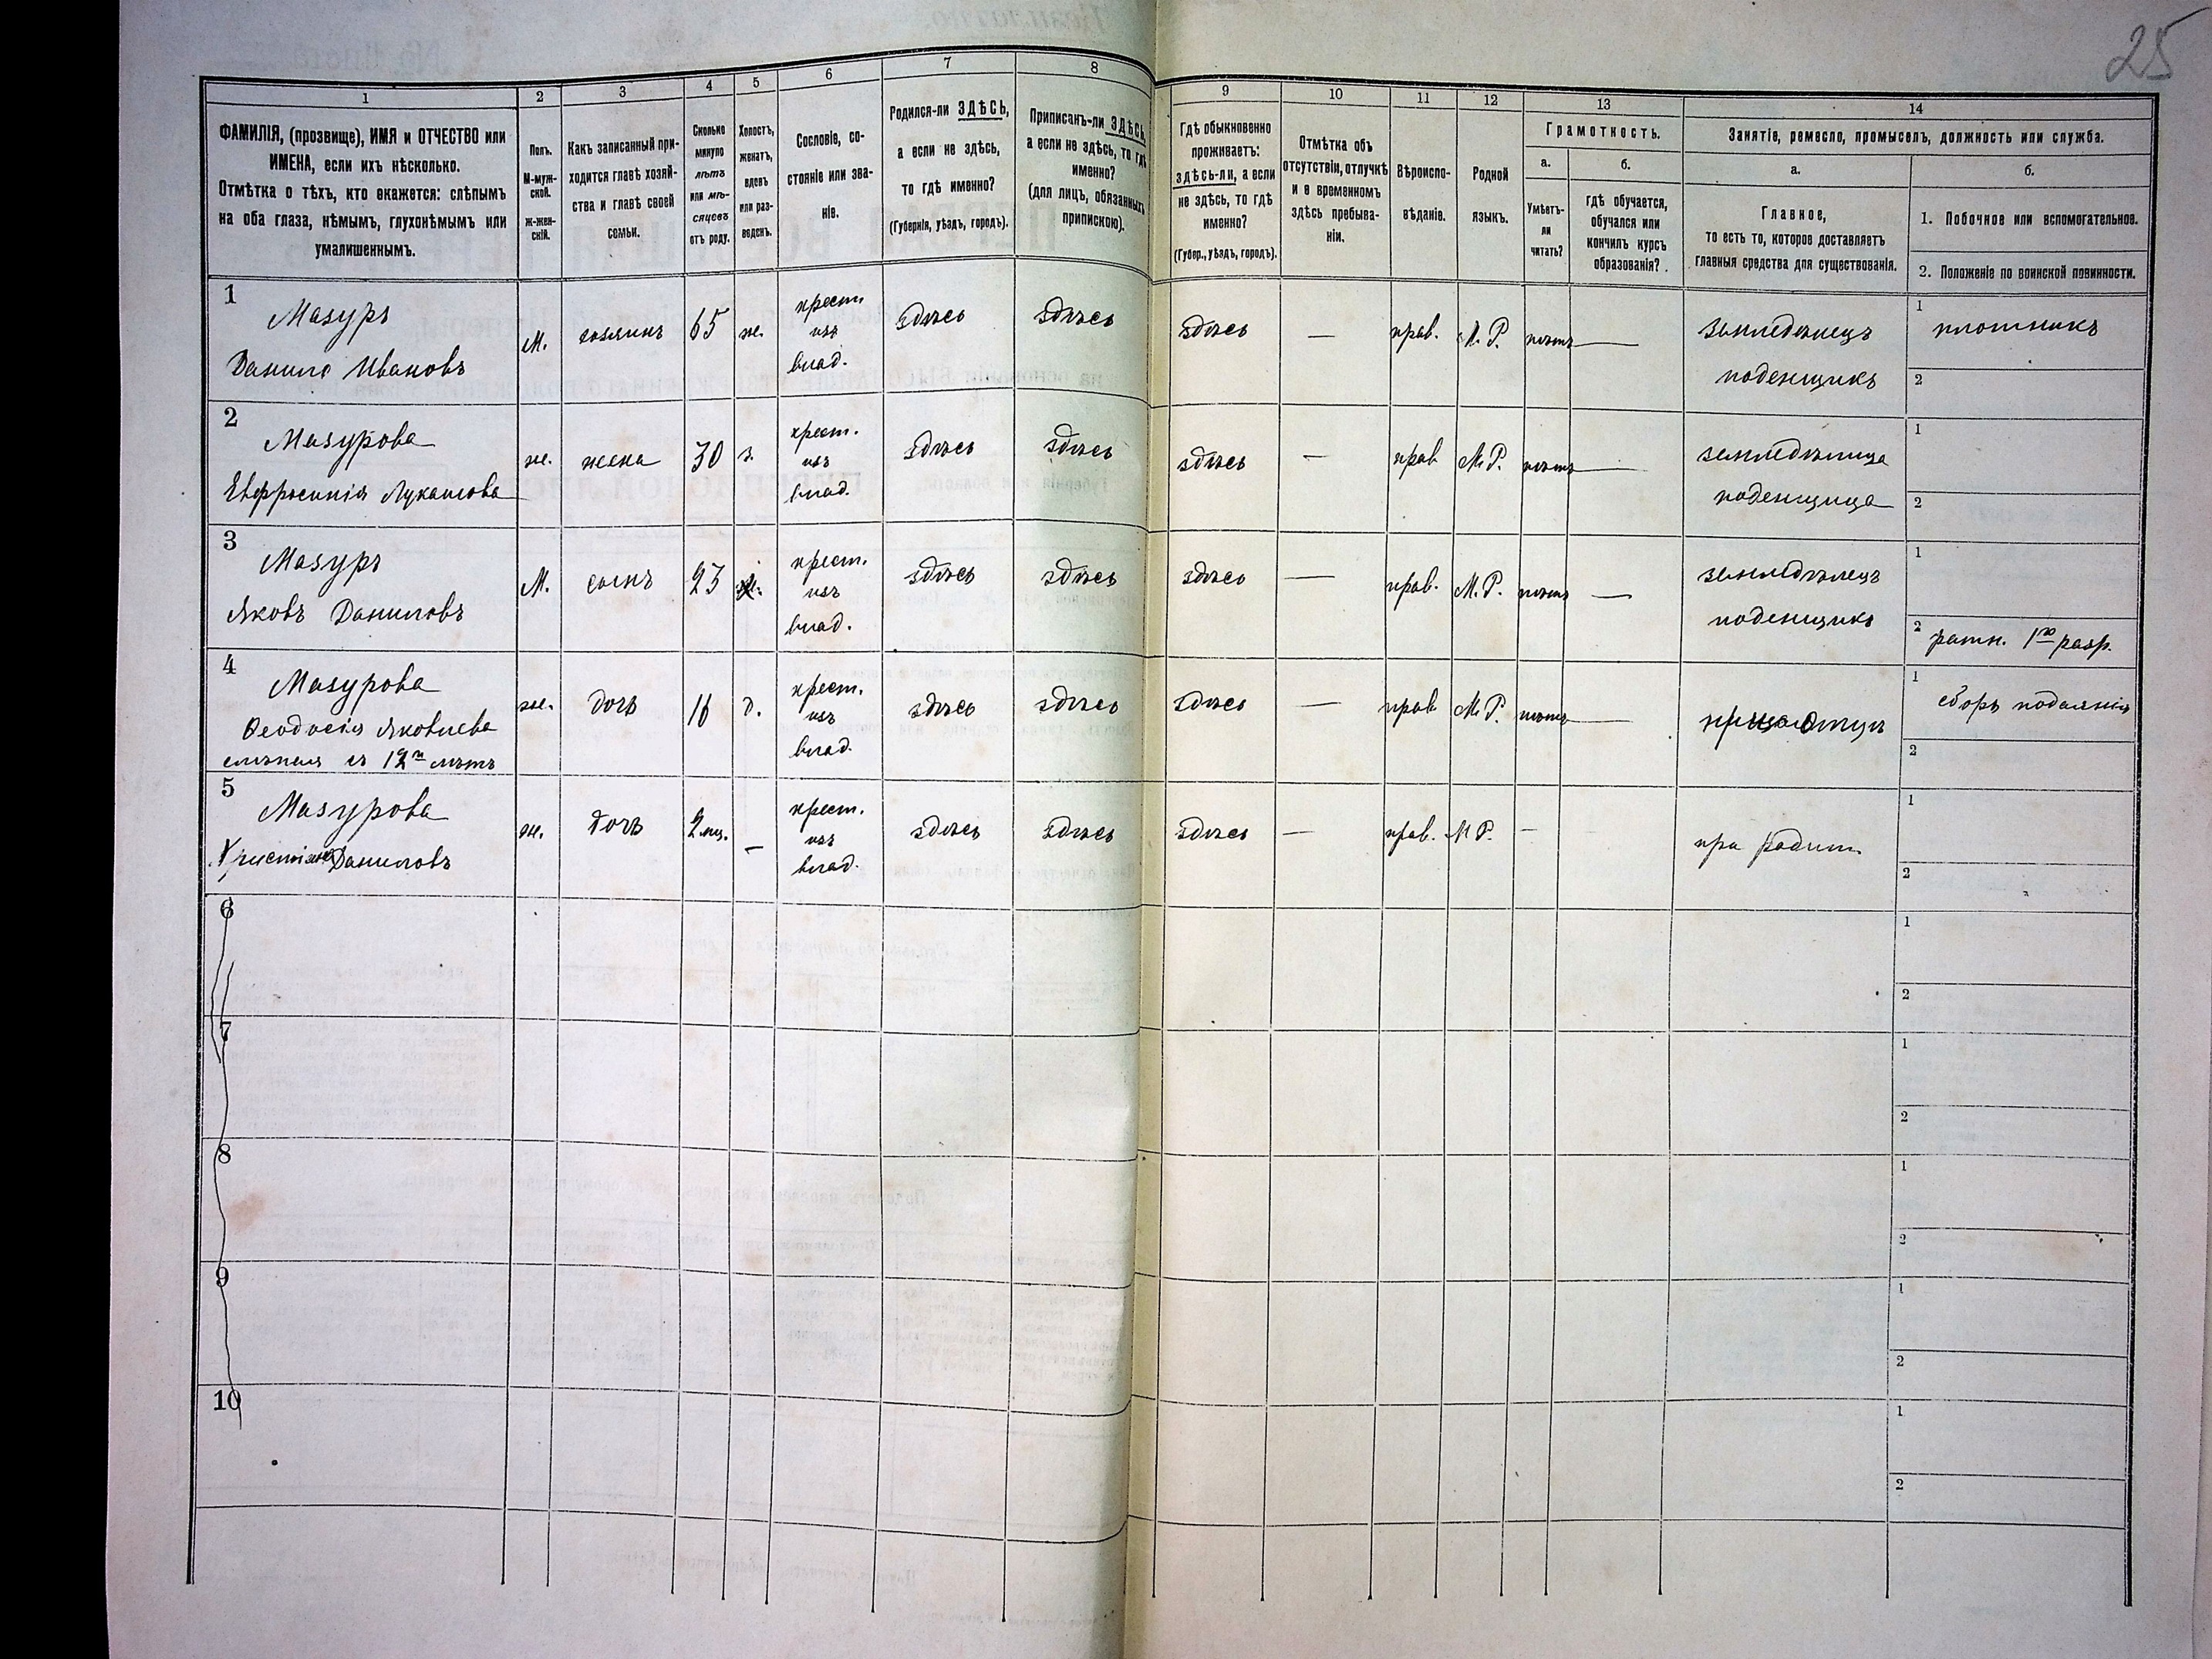 25
1
2
3
4
5
6
7
8
9
10
11
12
13
14
ФАМИЛІЯ, (прозвище), ИМЯ и ОТЧЕСТВО или
ИМЕНА, если ихъ нѣсколько.
Отмѣтка о тѣхъ, кто окажется: слѣпымъ
на оба глаза, нѣмымъ, глухонѣмымъ или
умалишеннымъ.
Полъ.
М-муж-
ской.
Ж-жен-
скій.
Какъ записанный при-
ходится главѣ хозяй-
ства и главѣ своей
семьи.
Сколько
минуло
лѣтъ
или мѣ-
сяцевъ
отъ роду.
Холостъ,
женатъ,
вдовъ
или раз-
веденъ.
Сословіе, со-
стояніе или зва-
ніе.
Родился-ли ЗДѢСЬ,
а если не здѣсь,
то гдѣ именно?
(Губернія, уѣздъ, городъ).
Приписанъ-ли ЗДѢСЬ,
а если не здѣсь, то гдѣ
именно?
(для лицъ, обязанныхъ
припискою).
Гдѣ обыкновенно
проживаетъ:
здѣсь-ли, а если
не здѣсь, то гдѣ
именно?
(Губер., уѣздъ, городъ).
Отмѣтка объ
отсутствіи, отлучкѣ
и о временномъ
здѣсь пребыва-
ніи.
Вѣроиспо-
вѣданіе.
Родной
языкъ.
Грамотность.
а.
Умѣетъ-
ли
читать?
б.
гдѣ обучается,
обучался или
кончилъ курсъ
образованія?
Занятіе, ремесло, промыселъ, должность или служба.
а.
Главное,
то есть то, которое доставляетъ
главныя средства для существованія.
б.
1. Побочное или вспомогательное.
2. Положеніе по воинской повинности.
1
Мазуръ
Данило Ивановъ
М. хозяинъ 65 ж. крест. изъ влад. здѣсь здѣсь здѣсь — прав. М. Р. нѣтъ —
земледѣлецъ
поденщикъ
1 плотникъ
2
2
Мазурова
Евфросинія Лукашова
ж. жена 30 з. крест. изъ влад. здѣсь здѣсь здѣсь — прав М. Р. нѣтъ —
земледѣлица
поденщица
1
2
3
Мазуръ
Яковъ Даниловъ
М. сынъ 23 крест. изъ влад. здѣсь здѣсь здѣсь — прав. М. Р. нѣтъ —
земледѣлецъ
поденщикъ
1
2 ратн. 1го разр.
4
Мазурова
Ѳеодосія Яковлева
слѣпая съ 12ти лѣтъ
ж. дочь 16 д. крест. изъ влад. здѣсь здѣсь здѣсь — прав М. Р. нѣтъ —
при отцѣ
1 сборъ подаянія
2
5
Мазурова
Даниловъ
ж. дочь 2 мц. — крест. изъ влад. здѣсь здѣсь здѣсь — прав. М Р. —
при родит.
1
2
6
1
2
7
1
2
8
1
2
9
1
2
10
1
2